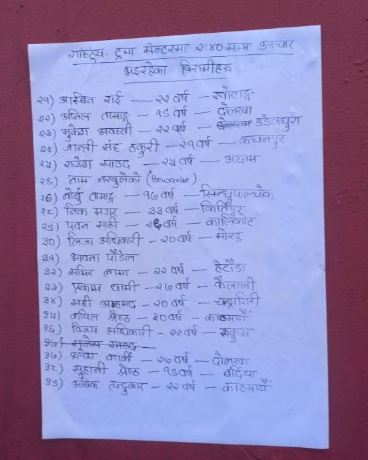 राष्ट्रिय ट्रमा सेन्टरमा २:४० सम्म उपचार
भइरहेका बिरामीहरु
२१) आश्विन राई — २२ वर्ष — खोटाङ्ग
२२) अनिल तामाङ्ग — १८ वर्ष — दोलखा
२३) मुकेश अवस्थी — २२ वर्ष — डडेलधुरा
२४) जान्त्री सिंह ठकुरी — २१ वर्ष — कंचनपुर
२५) राजेश साउद — २५ वर्ष — अछाम
२६) नाम नखुलेको (Unconscious)
२७) नोर्बु तामाङ्ग — १७ वर्ष — सिन्धुपाल्चोक
२८) तिक मगर — २३ वर्ष — किर्तिपुर
२९) पवन शाही — २६ वर्ष — कालिकोट
३०) लिजा अधिकारी — २० वर्ष — मोरङ
३१) भावना पौडेल
३२) समिर लामा — २२ वर्ष — हेटौंडा
३३) प्रकाश धामी — २७ वर्ष — कैलाली
३४) अहमद — २० वर्ष — चन्द्रागिरी
३५) कपिल श्रेष्ठ — ३० वर्ष — काठमाण्डौं
३६) विजय अधिकारी — २२ वर्ष — रुकुम
३७) कार्की — २७ वर्ष — दोलखा
३८) सुहानी श्रेष्ठ — १८ वर्ष — बर्दिया
३९) तन्डुकार — २२ वर्ष — काठमाण्डौं